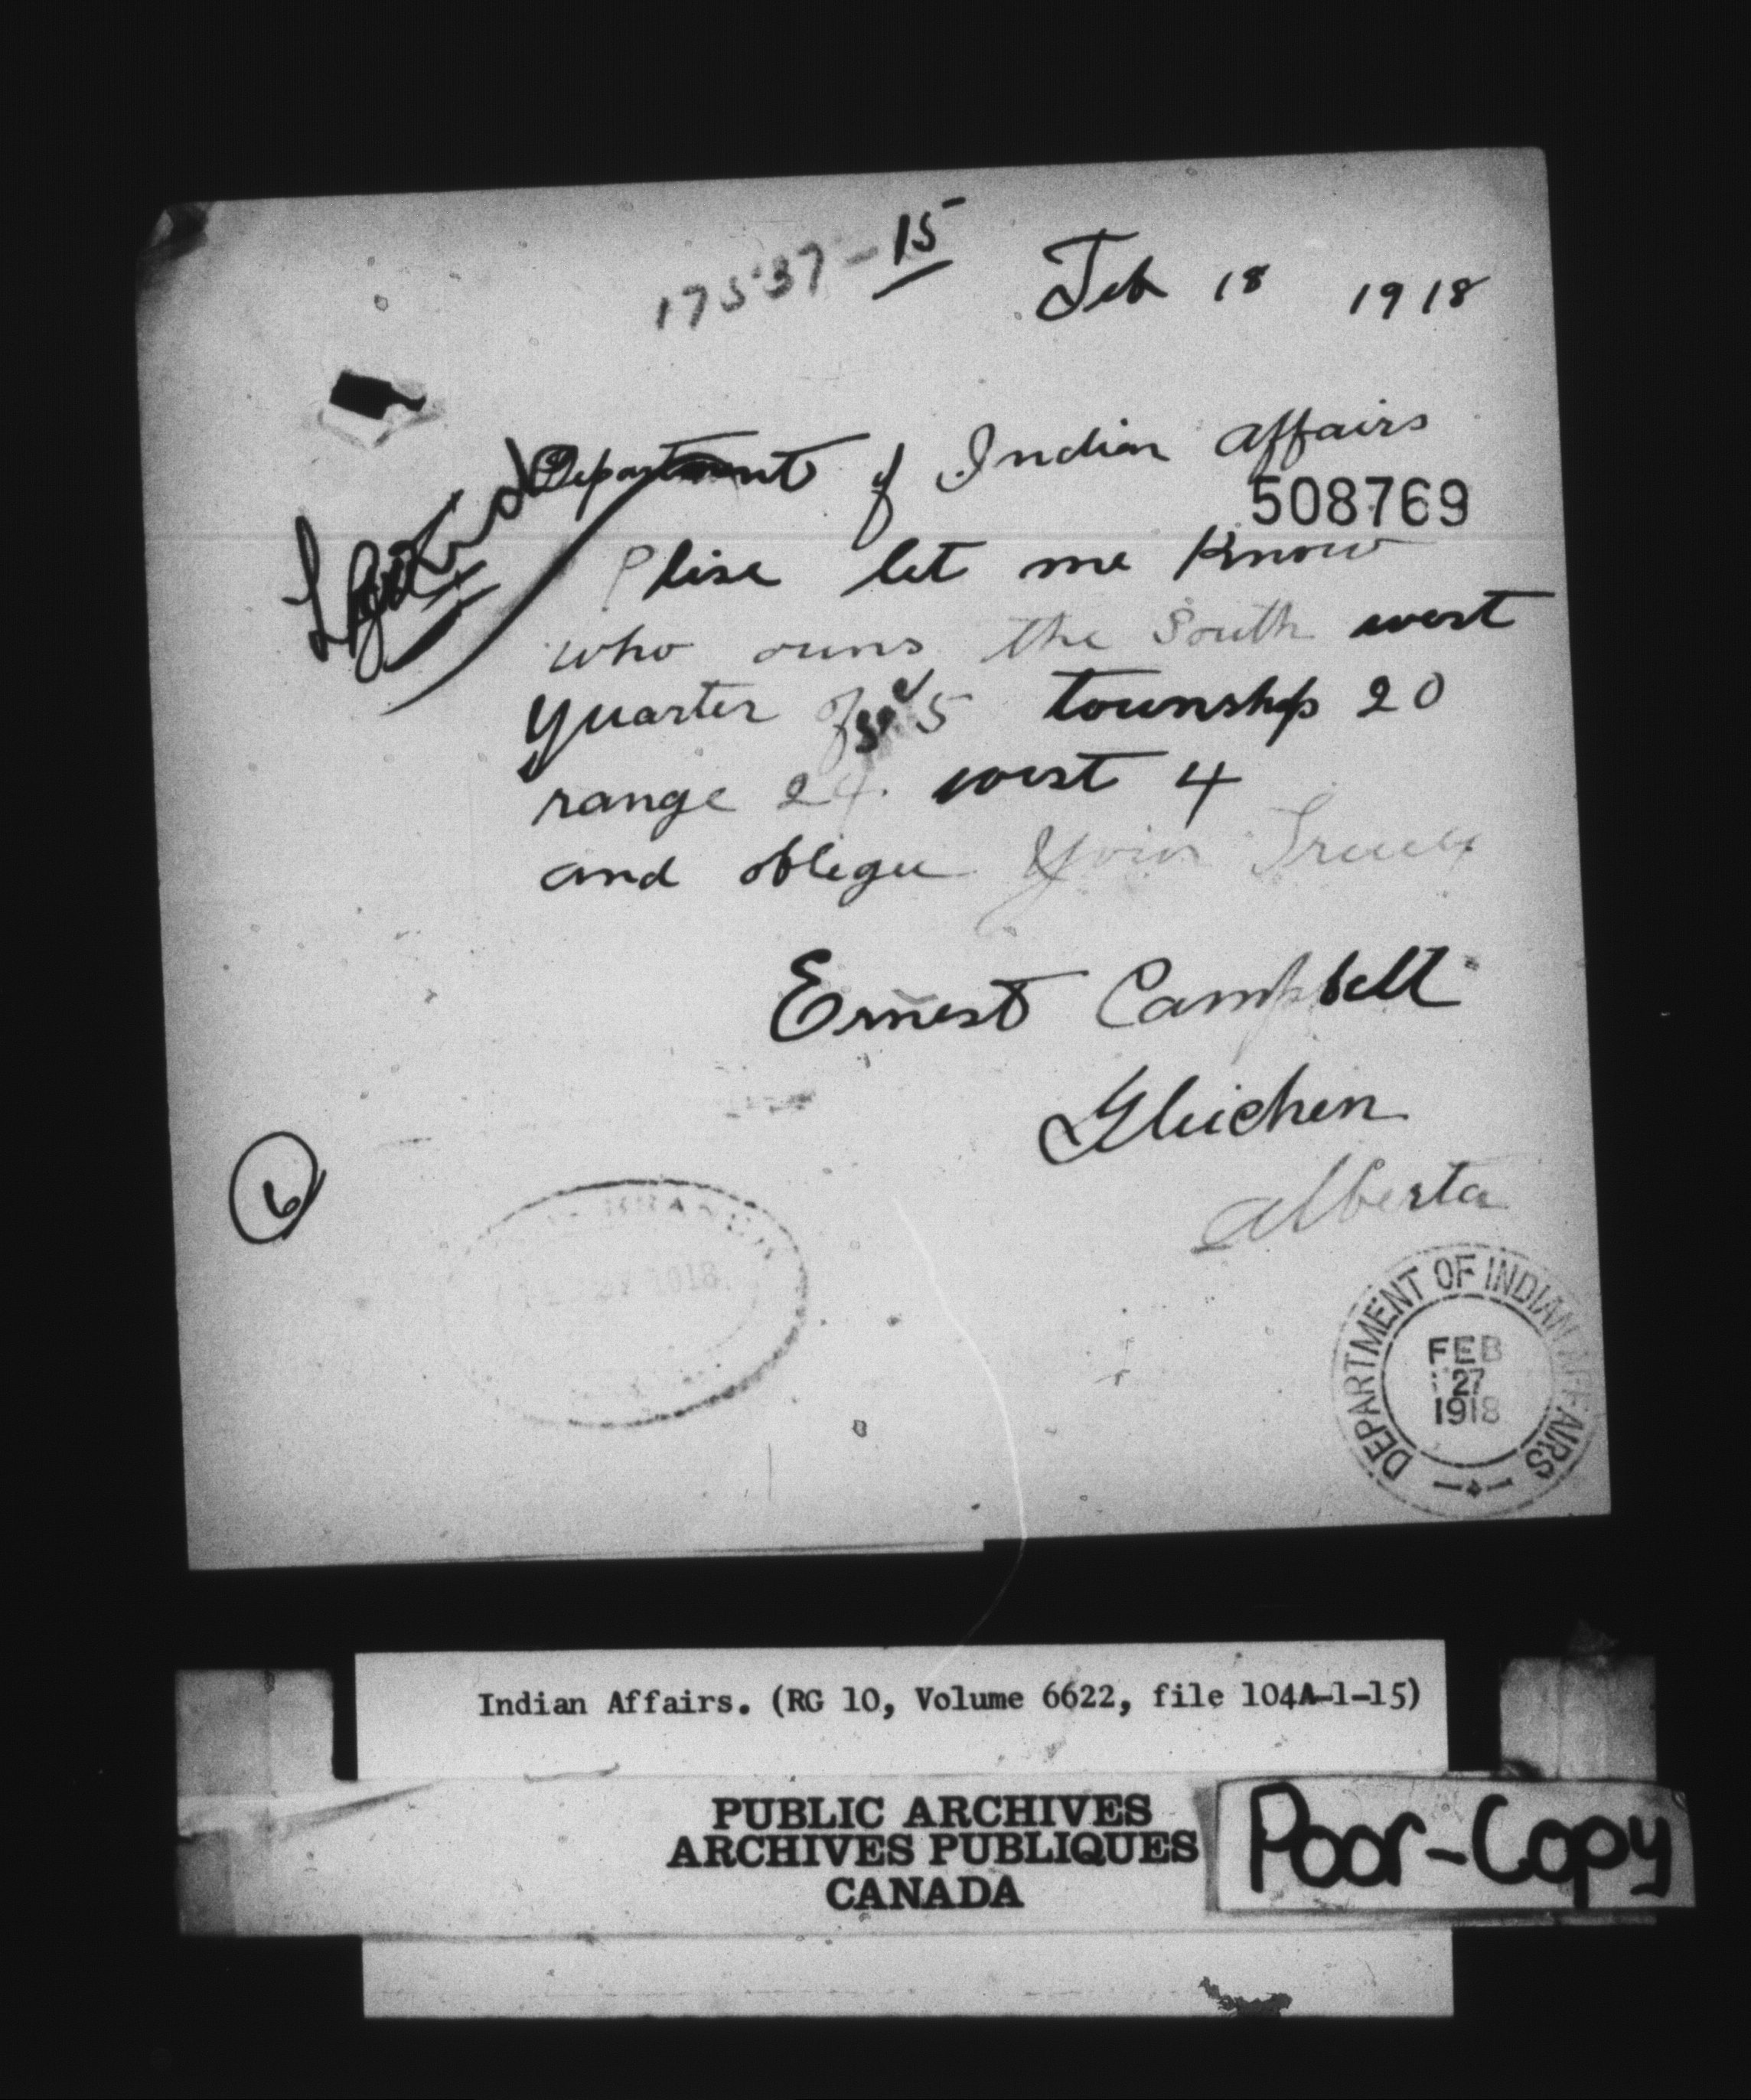 17537-15
Feb 18 1918
Department of Indian Affairs
508769
Plise let me know
who owns the South west
Quarter of 5 township 20
range 24 west 4
and oblegu Your Truely
Ernest Campbell
Gleichen
Alberta
6
BRANCH
1918
DEPARTMENT OF INDIAN AFFAIRS
FEB
27
1918
Indian Affairs. (RG 10, Volume 6622, file 104A-1-15)
PUBLIC ARCHIVES
ARCHIVES PUBLIQUES
CANADA
Poor-Copy